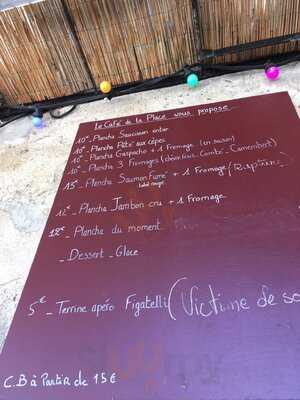 Le Café de la Place vous propose
10€_ Plancha Saucisson entier
10€_ Plancha Pâté aux cèpes
10€_ Plancha Gaspacho + 1 Fromage (en saison)
10€_ Plancha 3 Fromages (chèvre, Comté, Camembert)
15€_ Plancha Saumon Fumé + 1 Fromage (Rupture
Label rouge
12€_ Plancha Jambon cru + 1 Fromage
12€_ Plancha du moment
_ Dessert _ Glace
5€_ Terrine apéro Figatelli (Victime de so
C.B à Partir de 15€